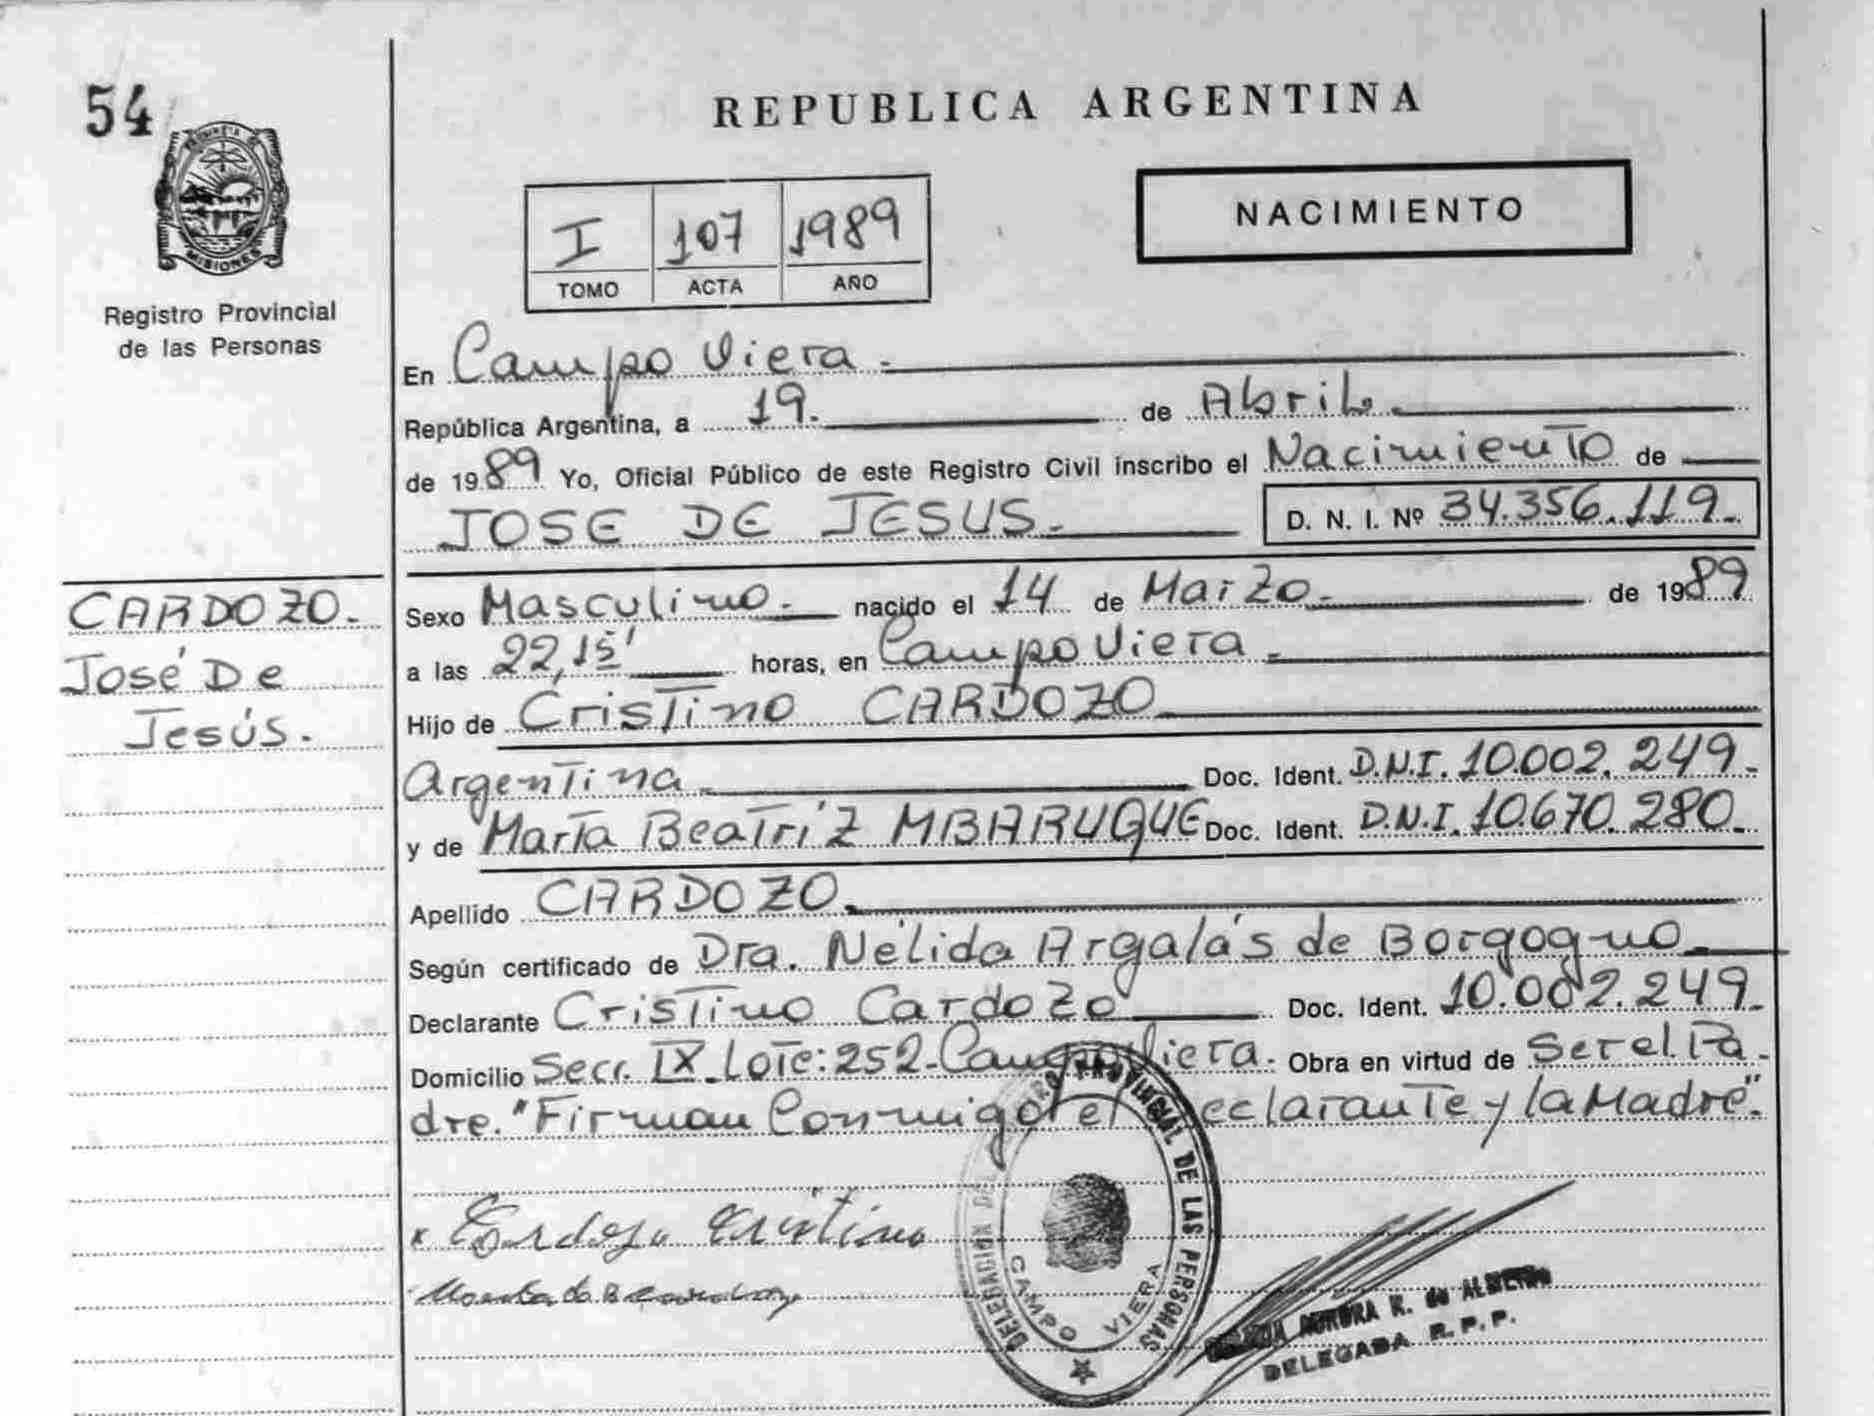 54
REPUBLICA ARGENTINA
PROVINCIA
MISIONES
Registro Provincial
de las Personas
I 107 1989
TOMO ACTA AÑO
NACIMIENTO
En Campo Viera.
República Argentina, a 19. de Abril.
de 1989 Yo, Oficial Público de este Registro Civil inscribo el Nacimiento de
JOSE DE JESUS. D. N. I. Nº 34.356.119.
CARDOZO.
José De
Jesús.
Sexo Masculino. nacido el 14 de Marzo. de 1989
a las 22,15' horas, en Campo Viera.
Hijo de Cristino CARDOZO
Argentina. Doc. Ident. D.N.I. 10.002.249.
y de Marta Beatríz MBARUQUE Doc. Ident. D.N.I. 10.670.280.
Apellido CARDOZO.
Según certificado de Dra. Nélida Argalás de Borgogno.
Declarante Cristino Cardozo Doc. Ident. 10.002.249.
Domicilio Secc. IX Lote: 252-Campo Viera. Obra en virtud de Ser el Pa
dre. "Firman Conmigo el Declarante y la Madre".
x Cardozo Cristino
DELEGACION DEL REGISTRO PROVINCIAL DE LAS PERSONAS
CAMPO VIERA
AURORA R. de ALMEIDA
DELEGADA R.P.P.